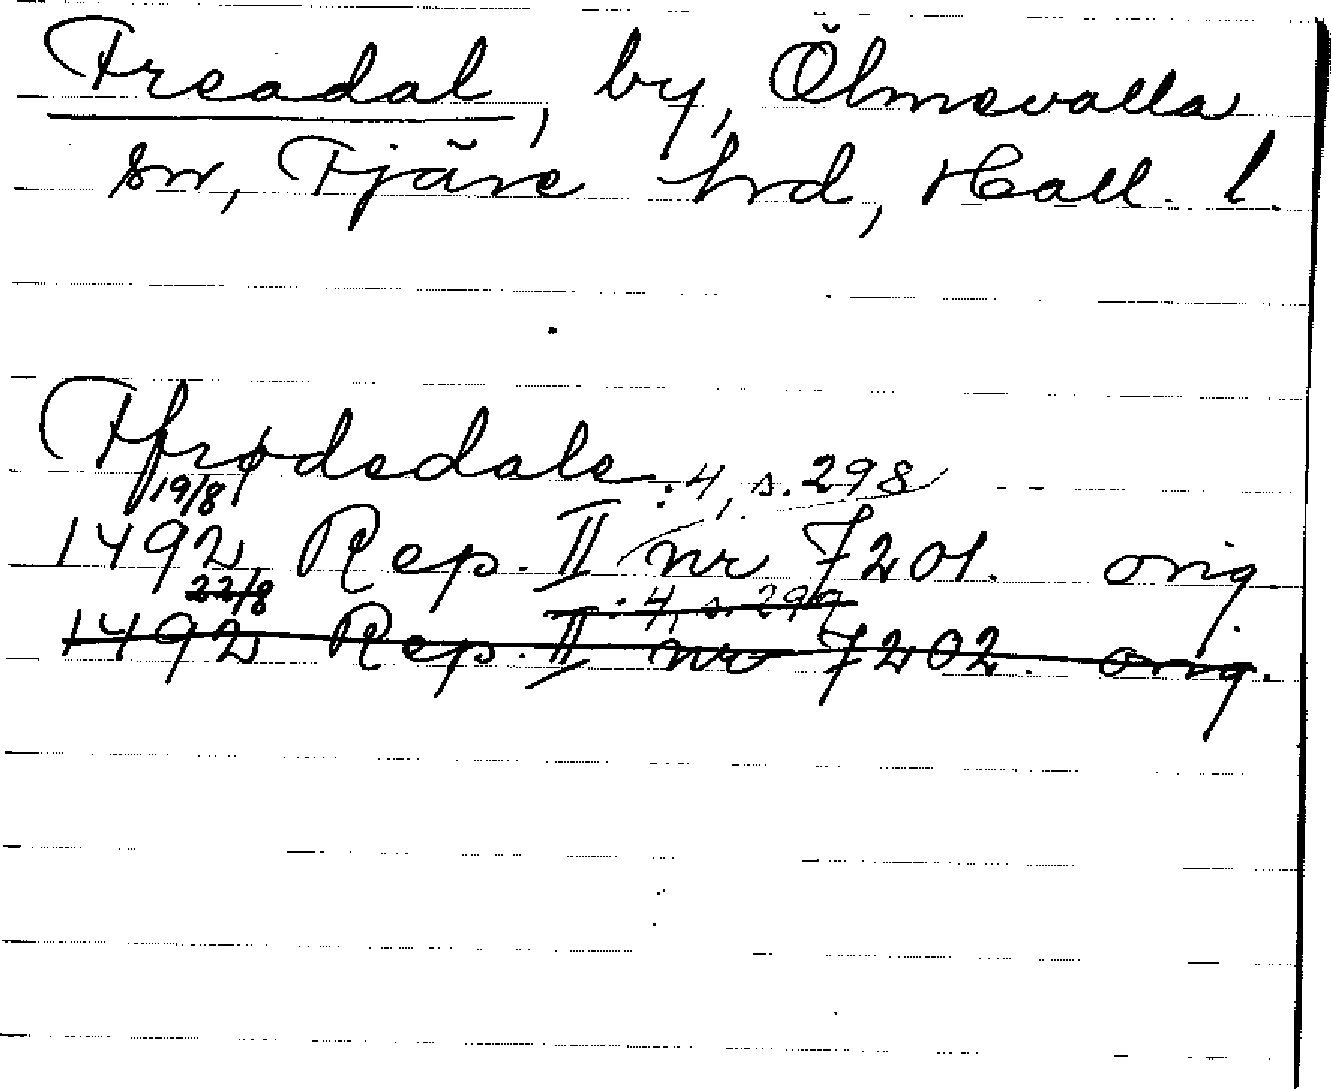 Freadal, by, Ölmevalla
sn, Fjäre hrd, Hall. l.
Ffrødedale
:4, s. 298
19/8
1492 Rep. II nr 7201. orig.
22/8 :4, s. 299
1492 Rep. II nr 7202. orig.